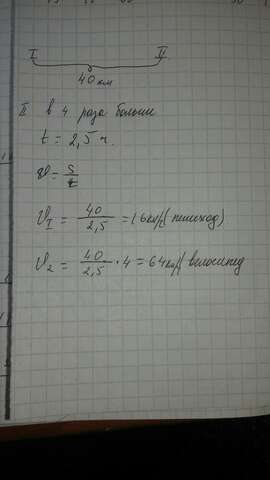 I II
40 км
II в 4 раза больше
t = 2,5 ч.
v = s/t
v_I = 40/2,5 = 16 км/ч (пешеход)
v_2 = 40/2,5 · 4 = 64 км/ч (велосипед